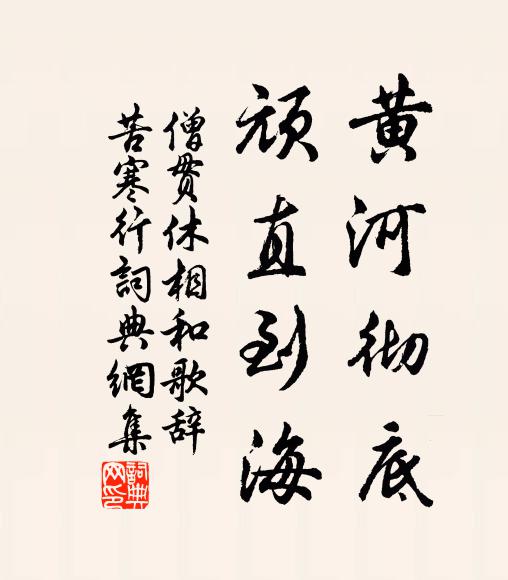 黄河彻底
頑直到海
僧贯休相和歌辞
苦寒行詞典網集
詞典
网印